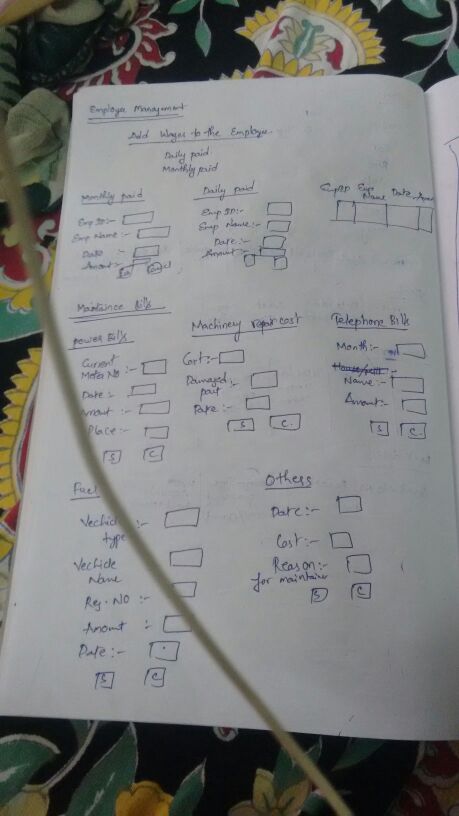 Employee Management
Add Wages to the Employee
Daily paid
Monthly paid
Monthly paid
Emp ID:-
Emp Name:-
Date :-
Amount:-
Cancel
Daily paid
Emp ID:-
Emp Name:-
Date:-
Amount:-
EmpID Emp Name Date Amou
Maintaince Bills
power Bills
Current
Meter No :-
Date :-
Amount :-
Place :-
S C
Machinery repair cost
Cost:-
Damaged:-
part
Date :-
S C
Telephone Bills
Month:-
Name:-
Amount:-
S C
Fuel
Vechicle :-
type
Vechicle
Name
Reg. NO :-
Amount :-
Date :-
S C
Others
Date :-
Cost :-
Reason:-
for maintaince
S C